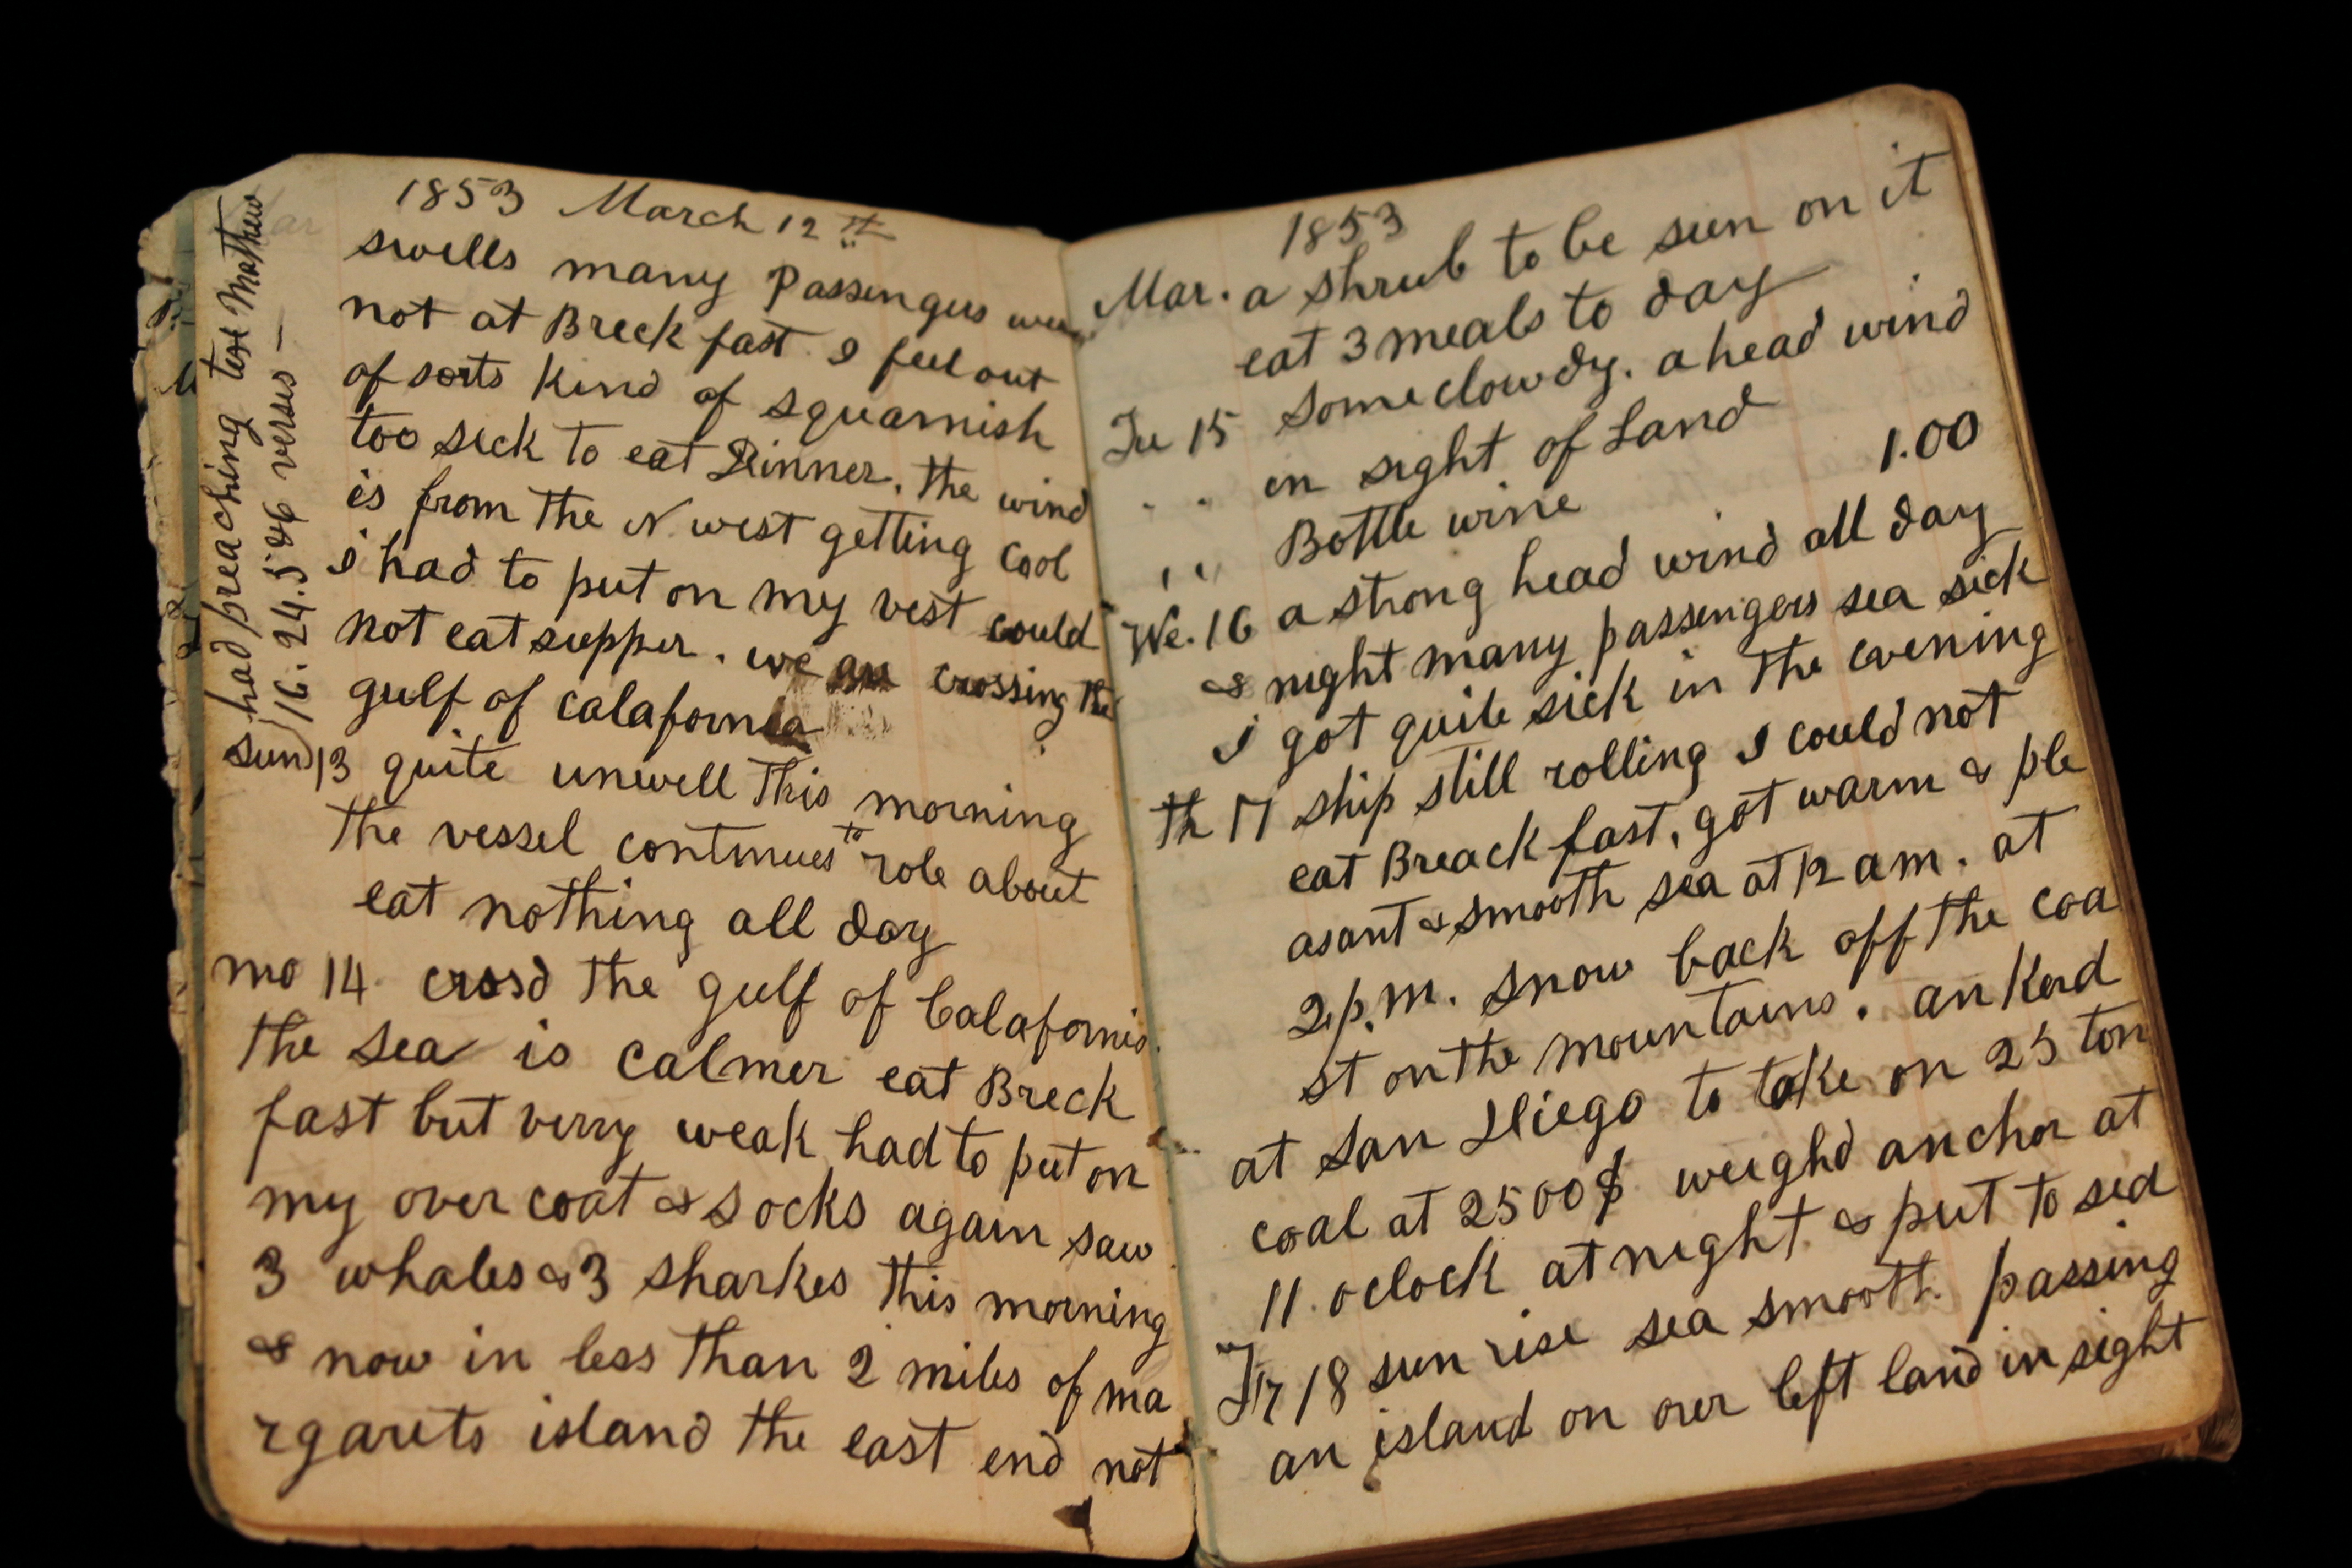 1853 March 12th
swells many Passengers were
not at Breckfast. I feel out
of sorts kind of squamish
too sick to eat Dinner. the wind
is from the N west getting cool
i had to put on my vest could
not eat supper. we are crossing the
gulf of calafornia
Sun 13 quite unwell this morning
the vessel continues to role about
eat nothing all day
mo 14. crosd the gulf of Calafornia
the sea is calmer eat Breck
fast but verry weak had to put on
my over coat & socks again saw
3 whales & 3 sharkes this morning
& now in less than 2 miles of ma
rgarets island the east end not
had preaching text Mathew
16. 24. 5 & 6 verses —
1853
Mar. a shrub to be seen on it
eat 3 meals to day
Tu 15 Some clowdy. a head wind
" in sight of Land
" Bottle wine 1.00
We. 16 a strong head wind all day
& night many passengers sea sick
I got quite sick in the evening
th 17 ship still rolling I could not
eat Breackfast, got warm & ple
asant & smooth sea at 12 am. at
2 p.m. snow back off the coa
st on the mountains. ankerd
at San Diego to take on 25 ton
coal at 2500$ weighd anchor at
11. oclock at night. & put to sea
Fr 18 sun rise sea smooth. passing
an island on over left land in sight